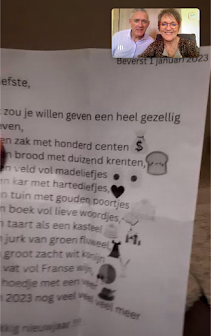 Beverst 1 januari 2023
efste,
zou je willen geven een heel gezellig
even,
en zak met honderd centen
en brood met duizend krenten,
en veld vol madeliefjes
en kar met hartediefjes,
en tuin met gouden poortjes
en boek vol lieve woordjes,
en taart als een kasteel
en jurk van groen fluweel
en groot zacht wit konijn
n vat vol Franse wijn
en hoedje met een veer
n 2023 nog veel veel veel meer
kkig nieuwjaar !!!